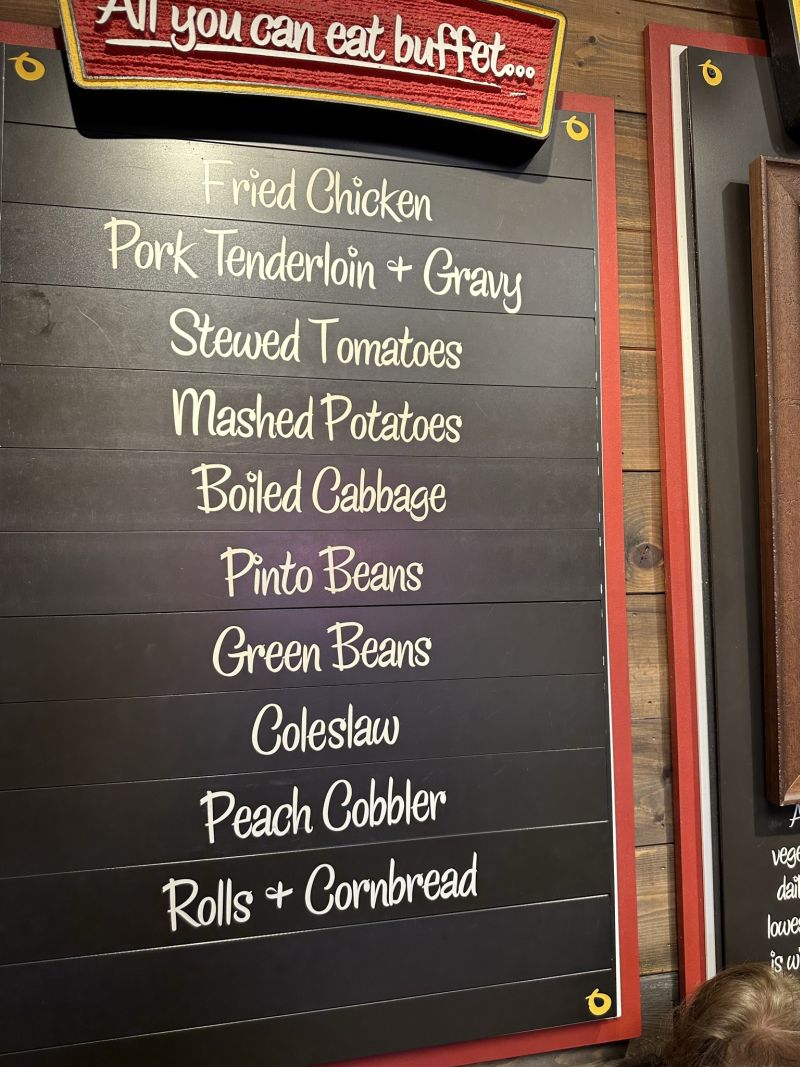 All you can eat buffet...
Fried Chicken
Pork Tenderloin + Gravy
Stewed Tomatoes
Mashed Potatoes
Boiled Cabbage
Pinto Beans
Green Beans
Coleslaw
Peach Cobbler
Rolls + Cornbread